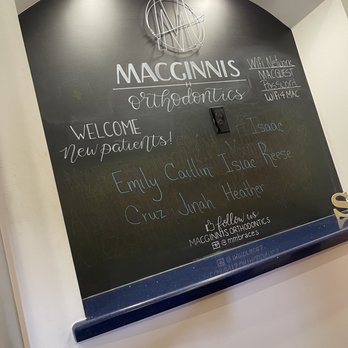 MACGINNIS
orthodontics
WiFi Network
MACGUEST
Password
WiFi4MAC
WELCOME
New patients!
Isaac
Emily Caitlin Isiac Reese
Cruz Jinah Heather
follow us
MACGINNIS ORTHODONTICS
@mmbraces